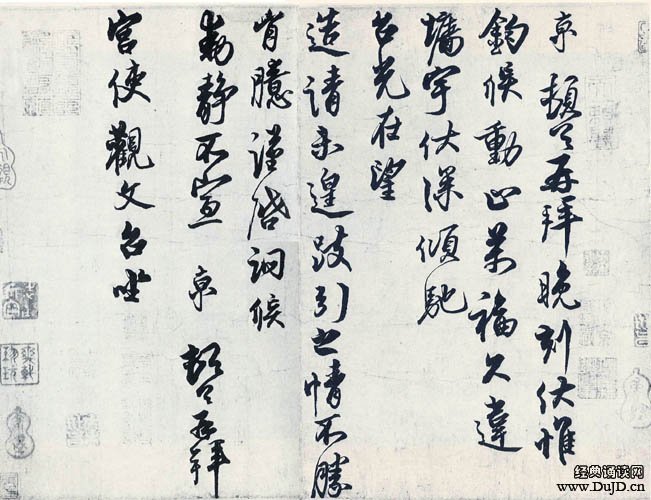 京 頓首再拜晚刻伏惟
鈞候動止萬福久違
墻宇伏深傾馳
台光在望
造請未遑跂引之情不勝
胷臆謹啓詢候
動静不宣 京 頓首再拜
宮使觀文台坐
经典诵读网
www.DuJD.cn